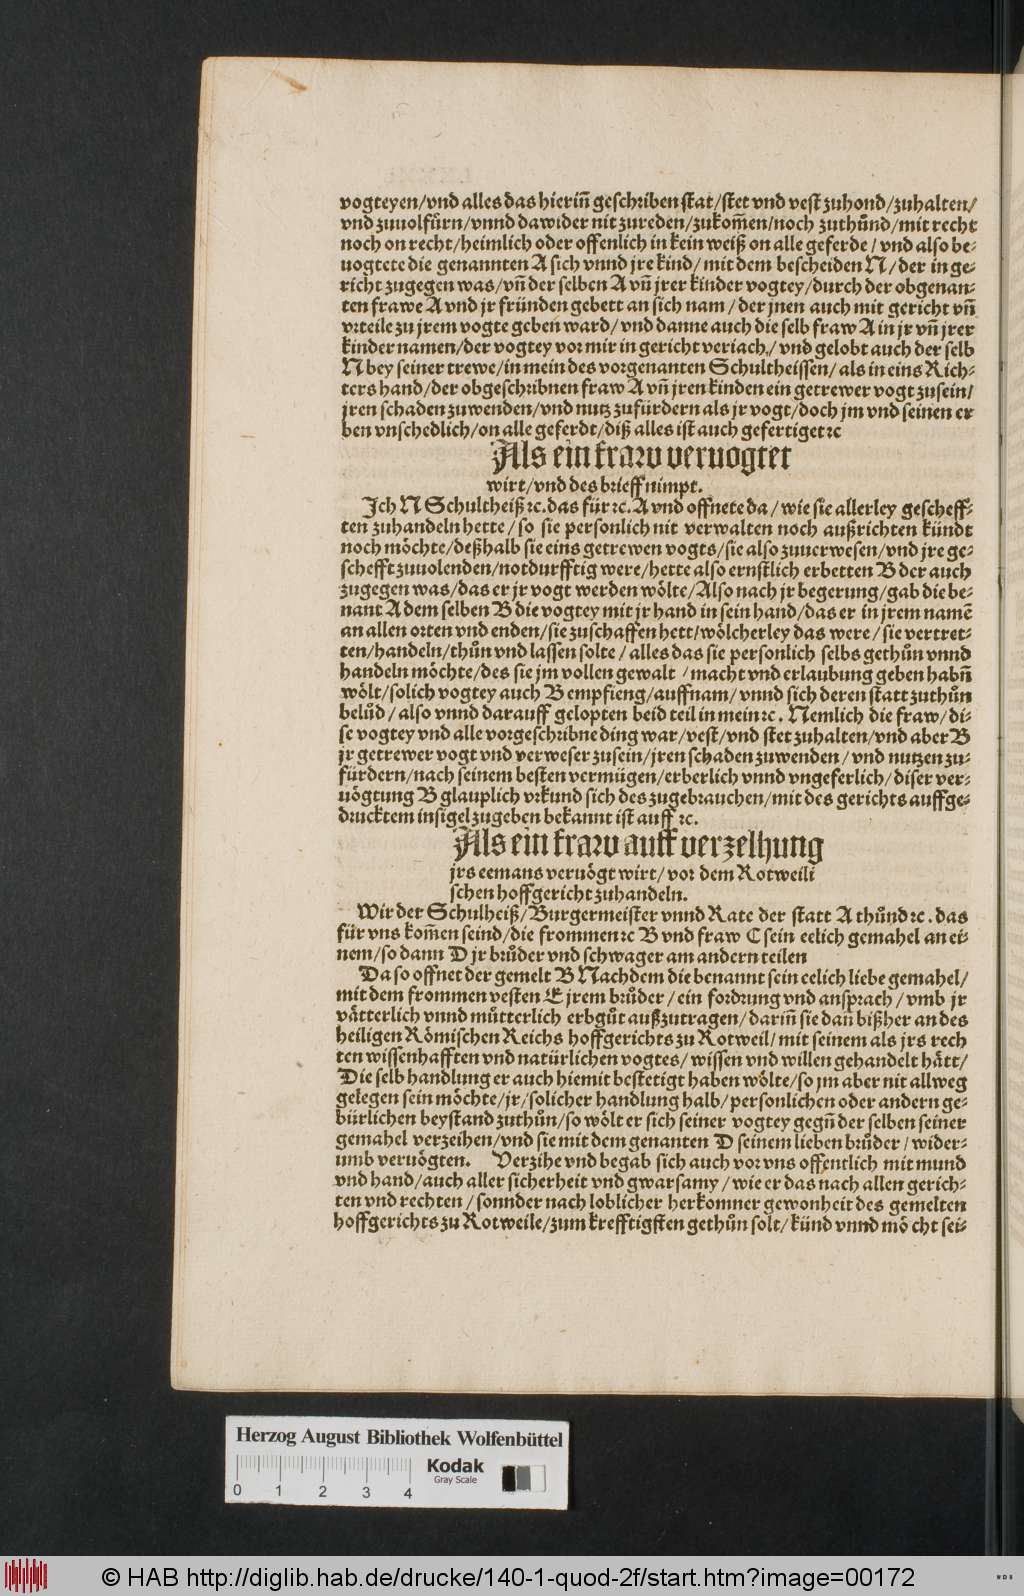 vogteyen/vnd alles das hierin̄ geschriben stat/stet vnd vest zuhond/zuhalten/
vnd zuuolfürn/vnnd dawider nit zureden/zukom̄en/noch zuthůnd/mit recht
noch on recht/heimlich oder offenlich in kein weiß on alle geferde/ vnd also be⸗
uogtete die genannten A sich vnnd jre kind/ mit dem bescheiden N/ der in ge⸗
richt zugegen was/vn̄ der selben A vn̄ jrer kinder vogtey/durch der obgenan⸗
ten frawe A vnd jr fründen gebett an sich nam/ der jnen auch mit gericht vn̄
vrteile zu jrem vogte geben ward/ vnd danne auch die selb fraw A in jr vn̄ jrer
kinder namen/der vogtey vor mir in gericht veriach/ vnd gelobt auch der selb
N bey seiner trewe/in mein des vorgenanten Schultheissen/ als in eins Rich⸗
ters hand/der obgeschribnen fraw A vn̄ jren kinden ein getrewer vogt zusein/
jren schaden zuwenden/vnd nutz zufürdern als jr vogt/doch jm vnd seinen er
ben vnschedlich/on alle geferdt/diß alles ist auch gefertiget ꝛc
Als ein fraw veruogtet
wirt/vnd des brieff nimpt.
Ich N Schultheiß ꝛc. das für ꝛc. A vnd offnete da/ wie sie allerley gescheff⸗
ten zuhandeln hette/ so sie personlich nit verwalten noch außrichten kündt
noch möchte/deßhalb sie eins getrewen vogts/sie also zuuerwesen/vnd jre ge⸗
schefft zuuolenden/notdurfftig were/hette also ernstlich erbetten B der auch
zugegen was/das er jr vogt werden wölte/Also nach jr begerung/gab die be⸗
nant A dem selben B die vogtey mit jr hand in sein hand/das er in jrem namē
an allen orten vnd enden/sie zuschaffen hett/wölcherley das were/ sie vertret⸗
ten/handeln/thůn vnd lassen solte/ alles das sie personlich selbs gethůn vnnd
handeln möchte/des sie jm vollen gewalt /macht vnd erlaubung geben habn̄
wölt/solich vogtey auch B empfieng/auffnam/ vnnd sich deren statt zuthůn
belůd/ also vnnd darauff gelopten beid teil in mein ꝛc. Nemlich die fraw/ di⸗
se vogtey vnd alle vorgeschribne ding war/vest/vnd stet zuhalten/vnd aber B
jr getrewer vogt vnd verweser zusein/jren schaden zuwenden/ vnd nutzen zu⸗
fürdern/nach seinem besten vermügen/erberlich vnnd vngeferlich/ diser ver⸗
uögtung B glauplich vrkund sich des zugebrauchen/mit des gerichts auffge⸗
drucktem insigel zugeben bekannt ist auff ꝛc.
Als ein fraw auff verzelhung
jrs eemans veruögt wirt/ vor dem Rotweili
schen hoffgericht zuhandeln.
Wir der Schulheiß/Burgermeister vnnd Rate der statt A thůnd ꝛc. das
für vns kom̄en seind/die frommen ꝛc B vnd fraw C sein eelich gemahel an ei⸗
nem/so dann D jr brůder vnd schwager am andern teilen
Da so offnet der gemelt B Nachdem die benannt sein eelich liebe gemahel/
mit dem frommen vesten E jrem brůder/ ein fordrung vnd ansprach/ vmb jr
vätterlich vnnd můtterlich erbgůt außzutragen/ darin̄ sie dan̄ bißher an des
heiligen Römischen Reichs hoffgerichts zu Rotweil/ mit seinem als jrs rech
ten wissenhafften vnd natürlichen vogtes/ wissen vnd willen gehandelt hätt/
Die selb handlung er auch hiemit bestetigt haben wölte/so jm aber nit allweg
gelegen sein möchte/jr/solicher handlung halb/ personlichen oder andern ge⸗
bürlichen beystand zuthůn/so wölt er sich seiner vogtey gegn̄ der selben seiner
gemahel verzeihen/vnd sie mit dem genanten D seinem lieben brůder/ wider⸗
umb veruögten. Verzihe vnd begab sich auch vor vns offentlich mit mund
vnd hand/auch aller sicherheit vnd gwarsamy/ wie er das nach allen gerich⸗
ten vnd rechten/ sonnder nach loblicher herkomner gewonheit des gemelten
hoffgerichts zu Rotweile/zum krefftigsten gethůn solt/ künd vnnd mö cht sei⸗
Herzog August Bibliothek Wolfenbüttel
Kodak
Gray Scale
0 1 2 3 4
© HAB http://diglib.hab.de/drucke/140-1-quod-2f/start.htm?image=00172